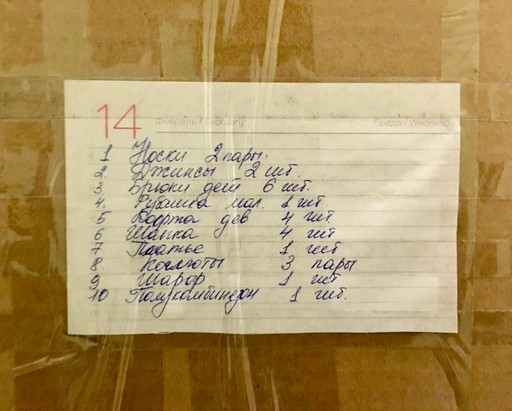 14 Февраль / February Среда / Wednesday
1 Носки 2 пары.
2. Джинсы 2 шт.
3 Брюки дет 6 шт.
4. Рубашка мал. 1 шт.
5 Кофта дев 4 шт
6 Шапка 4 шт
7 Платье 1 шт
8 Колготы 3 пары
9 Шарф 1 шт
10 Полукомбинезон 1 шт.